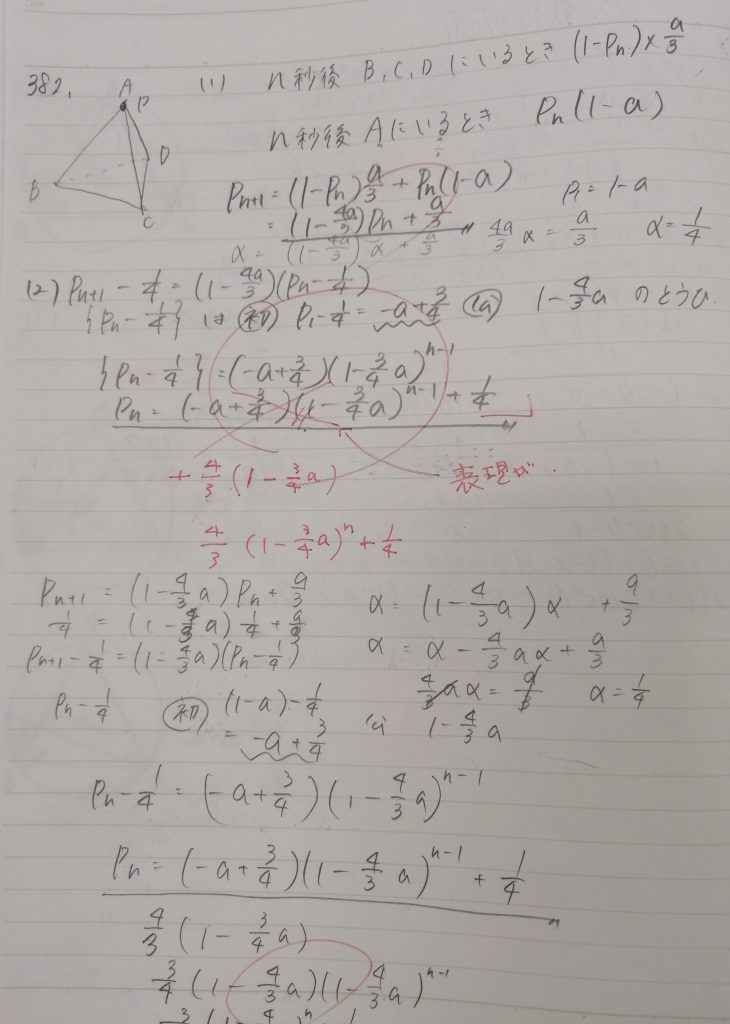 382.
A
P
B
D
C
(1) n秒後 B, C, D にいるとき (1-Pn)×a/3
n秒後 Aにいるとき Pn(1-a)
Pn+1 = (1-Pn)a/3 + Pn(1-a) P1 = 1-a
= (1-4a/3)Pn + a/3
α = (1-4a/3)α + a/3 4a/3 α = a/3 α = 1/4
(2) Pn+1 - 1/4 = (1-4a/3)(Pn-1/4)
{Pn-1/4} は 初 P1-1/4 = -a+3/4 1-4/3a のとうひ
{Pn-1/4} = (-a+3/4)(1-3/4a)^n-1
Pn = (-a+3/4)(1-3/4a)^n-1 + 1/4
+ 4/3 (1-3/4a) 表現が.
4/3 (1-3/4a)^n + 1/4
Pn+1 = (1-4/3a)Pn + a/3 α = (1-4/3a)α + a/3
1/4 = (1-4/3a)1/4 + a/3
Pn+1 - 1/4 = (1-4/3a)(Pn-1/4) α = α - 4/3aα + a/3
4/3aα = a/3 α = 1/4
Pn-1/4 初 (1-a)-1/4 1-4/3a
= -a+3/4
Pn-1/4 = (-a+3/4)(1-4/3a)^n-1
Pn = (-a+3/4)(1-4/3a)^n-1 + 1/4
4/3(1-3/4a)
3/4(1-4/3a)(1-4/3a)^n-1